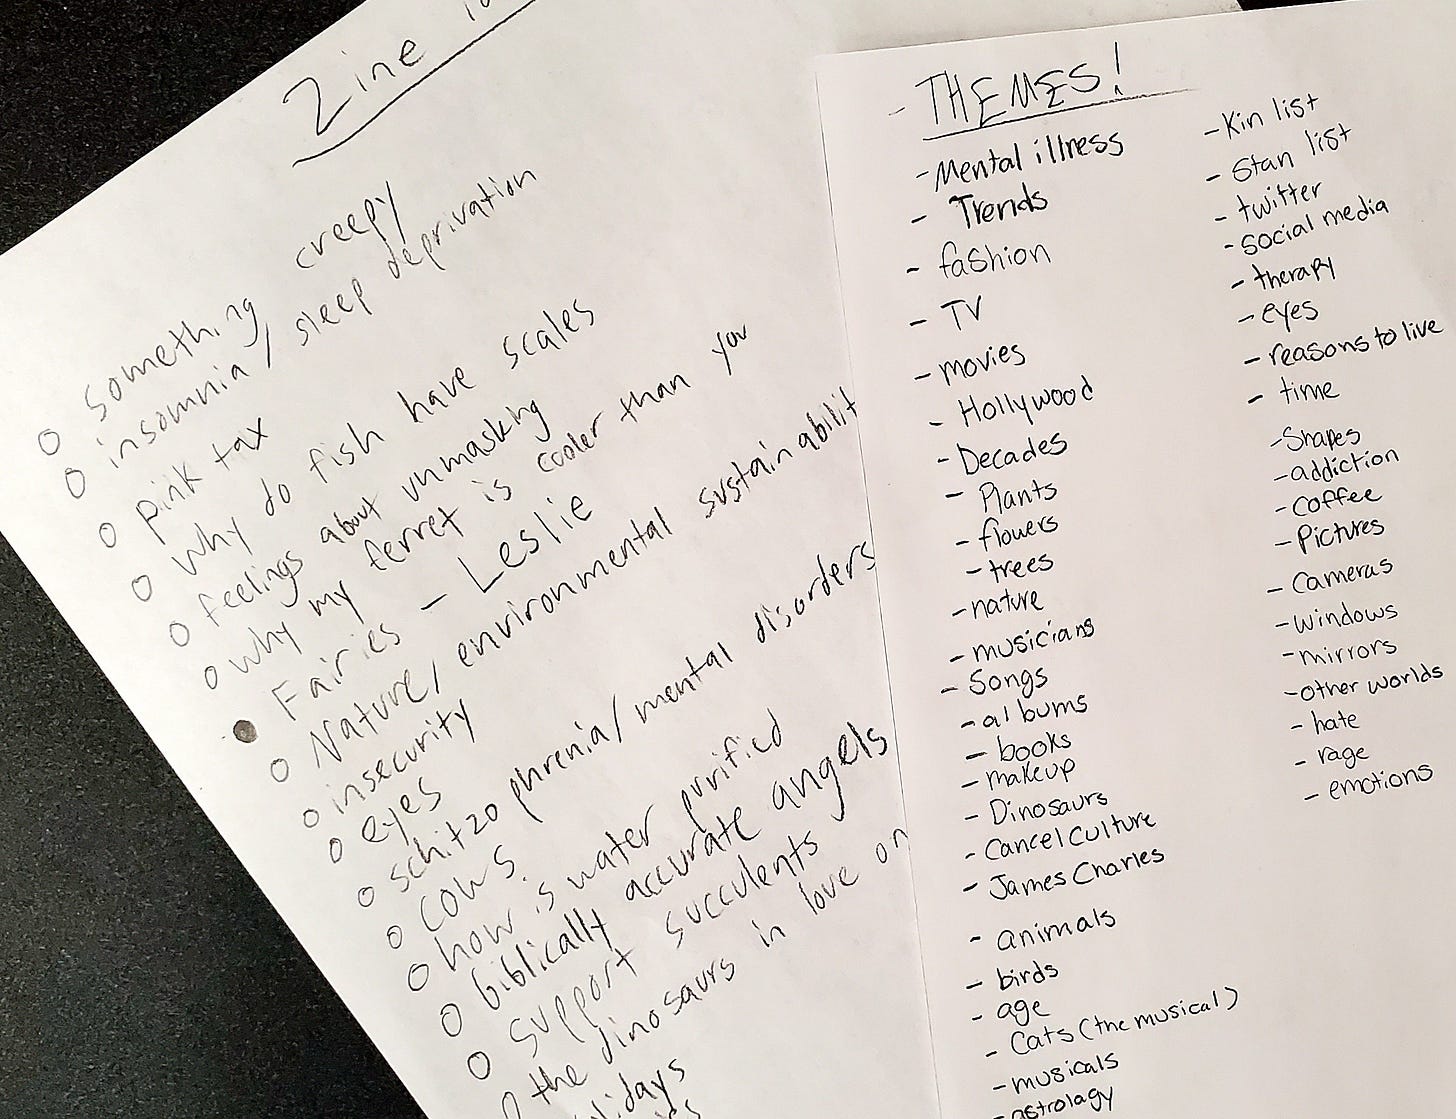 Zine
something creepy
insomnia / sleep deprivation
pink tax
why do fish have scales
feelings about unmasking
why my ferret is cooler than you
Fairies - Leslie
Nature / environmental sustainabilit
insecurity
eyes
schitzophrenia / mental disorders
cows.
how is water purified
biblically accurate angels
support succulents
the dinosaurs in love on
- THEMES!
- Mental illness
- Trends
- fashion
- TV
- movies
- Hollywood
- Decades
- Plants
- flowers
- trees
- nature
- musicians
- Songs
- albums
- books
- makeup
- Dinosaurs
- Cancel Culture
- James Charles
- animals
- birds
- age
- Cats (the musical)
- musicals
- astrology
- Kin list
- Stan list
- twitter
- social media
- therapy
- eyes
- reasons to live
- time
- Shapes
- addiction
- coffee
- Pictures
- Cameras
- windows
- mirrors
- other worlds
- hate
- rage
- emotions